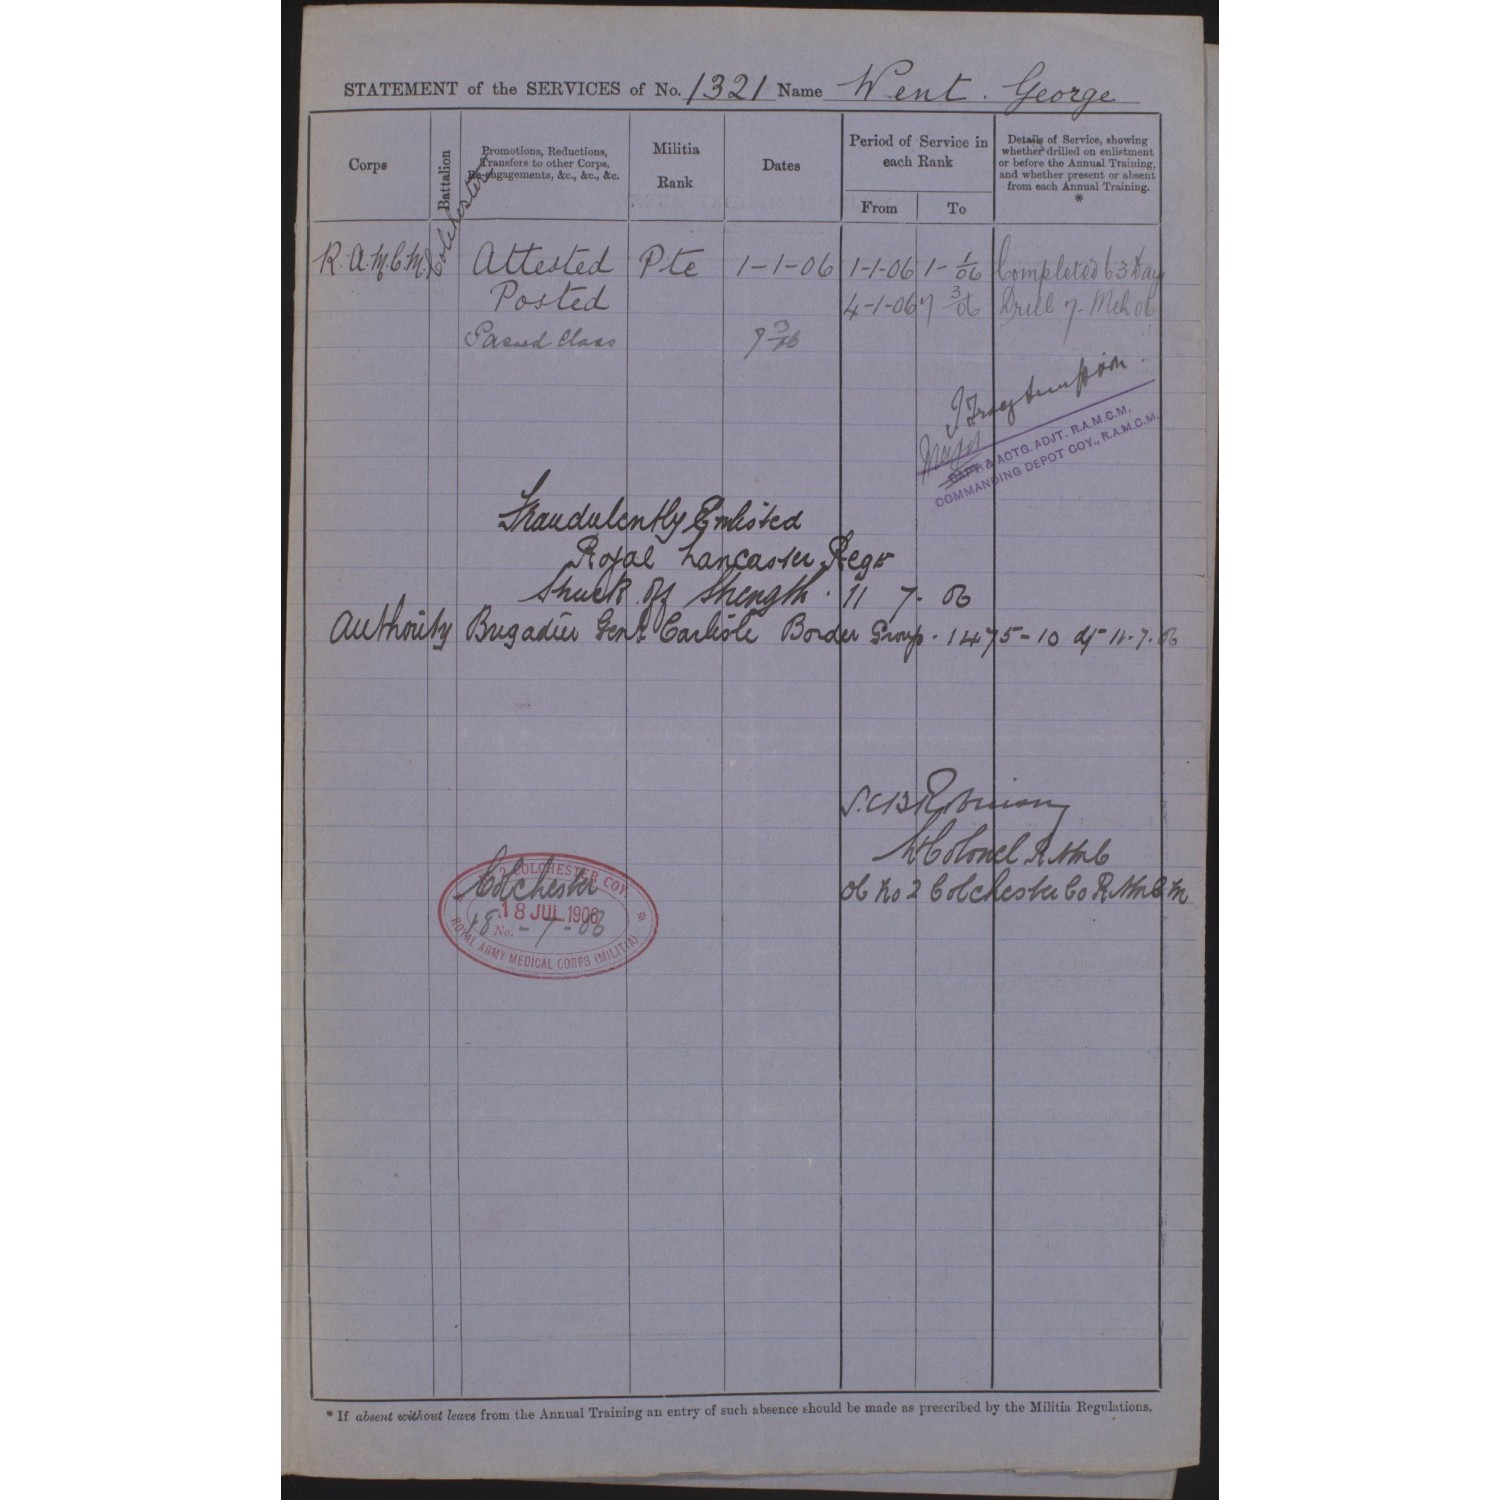 STATEMENT of the SERVICES of No. 1321 Name Went. George
Corps
Battalion
Promotions, Reductions,
Transfers to other Corps,
Re-engagements, &c., &c., &c.
Militia
Rank
Dates
Period of Service in
each Rank
From
To
Details of Service, showing
whether drilled on enlistment
or before the Annual Training,
and whether present or absent
from each Annual Training.
*
R.A.M.C.M. Colchester Attested Pte 1-1-06 1-1-06 1-1/06 Completed 63 Days
Posted 4-1-06 7 3/06 Drill 7. Mch 06
Passed Class 7 3/06
Major
CAPT. & ACTG. ADJT. R.A.M.C.M.
COMMANDING DEPOT COY., R.A.M.C.M.
Fraudulently Enlisted
Royal Lancaster Regt
Struck off Strength. 11 7. 06
Authority Brigadier Genl Carlisle Border Group. 1475-10 d/- 11.7.06
Robinson
Lt Colonel RAMC
OC No 2 Colchester Co RAMC M
2 COLCHESTER COY.
Colchester
18 JUL 1906
18-7-06
No.
ROYAL ARMY MEDICAL CORPS (MILITIA)
* If absent without leave from the Annual Training an entry of such absence should be made as prescribed by the Militia Regulations.